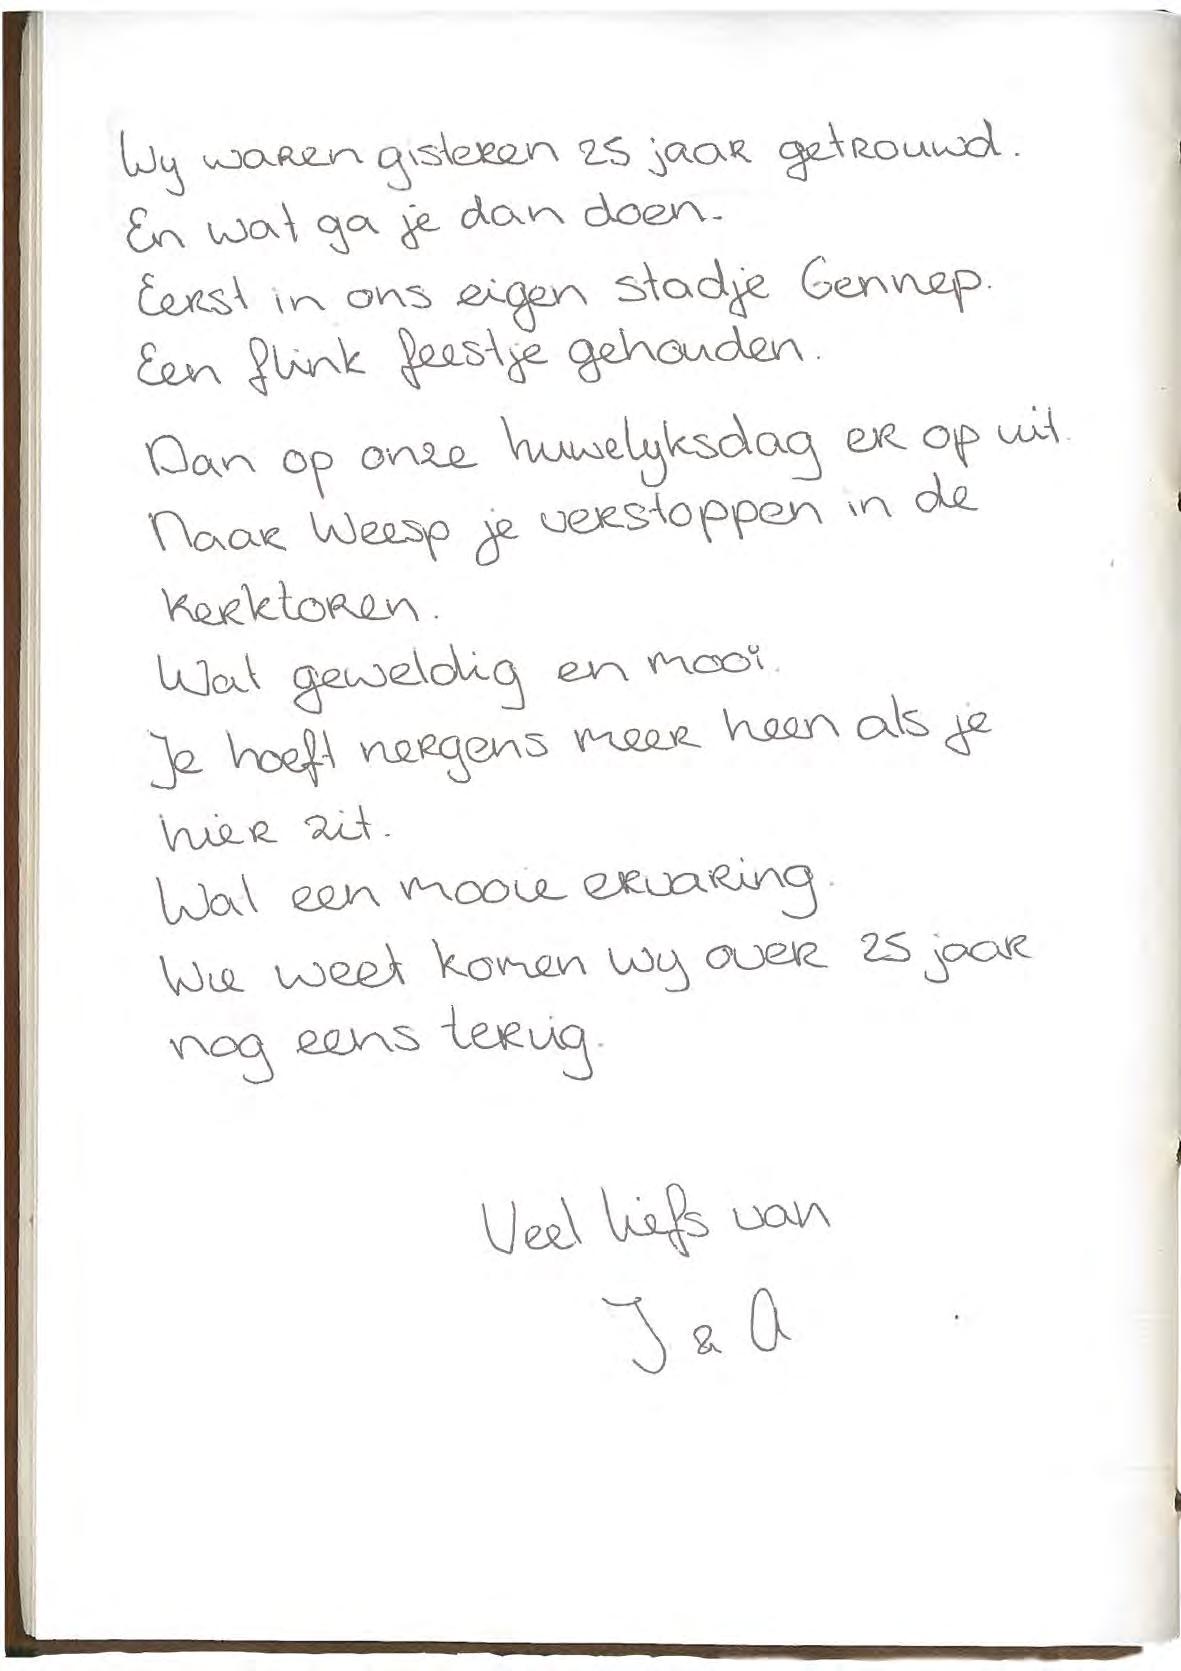 Wy waren gisteren 25 jaar getrouwd.
En wat ga je dan doen.
Eerst in ons eigen stadje Gennep.
Een flink feestje gehouden.
Dan op onze huwelyksdag er op uit.
Naar Weesp je verstoppen in de
kerktoren.
Wat geweldig en mooi.
Je hoeft nergens meer heen als je
hier zit.
Wat een mooie ervaring.
Wie weet komen wy over 25 jaar
nog eens terug.
Veel liefs van
J & A